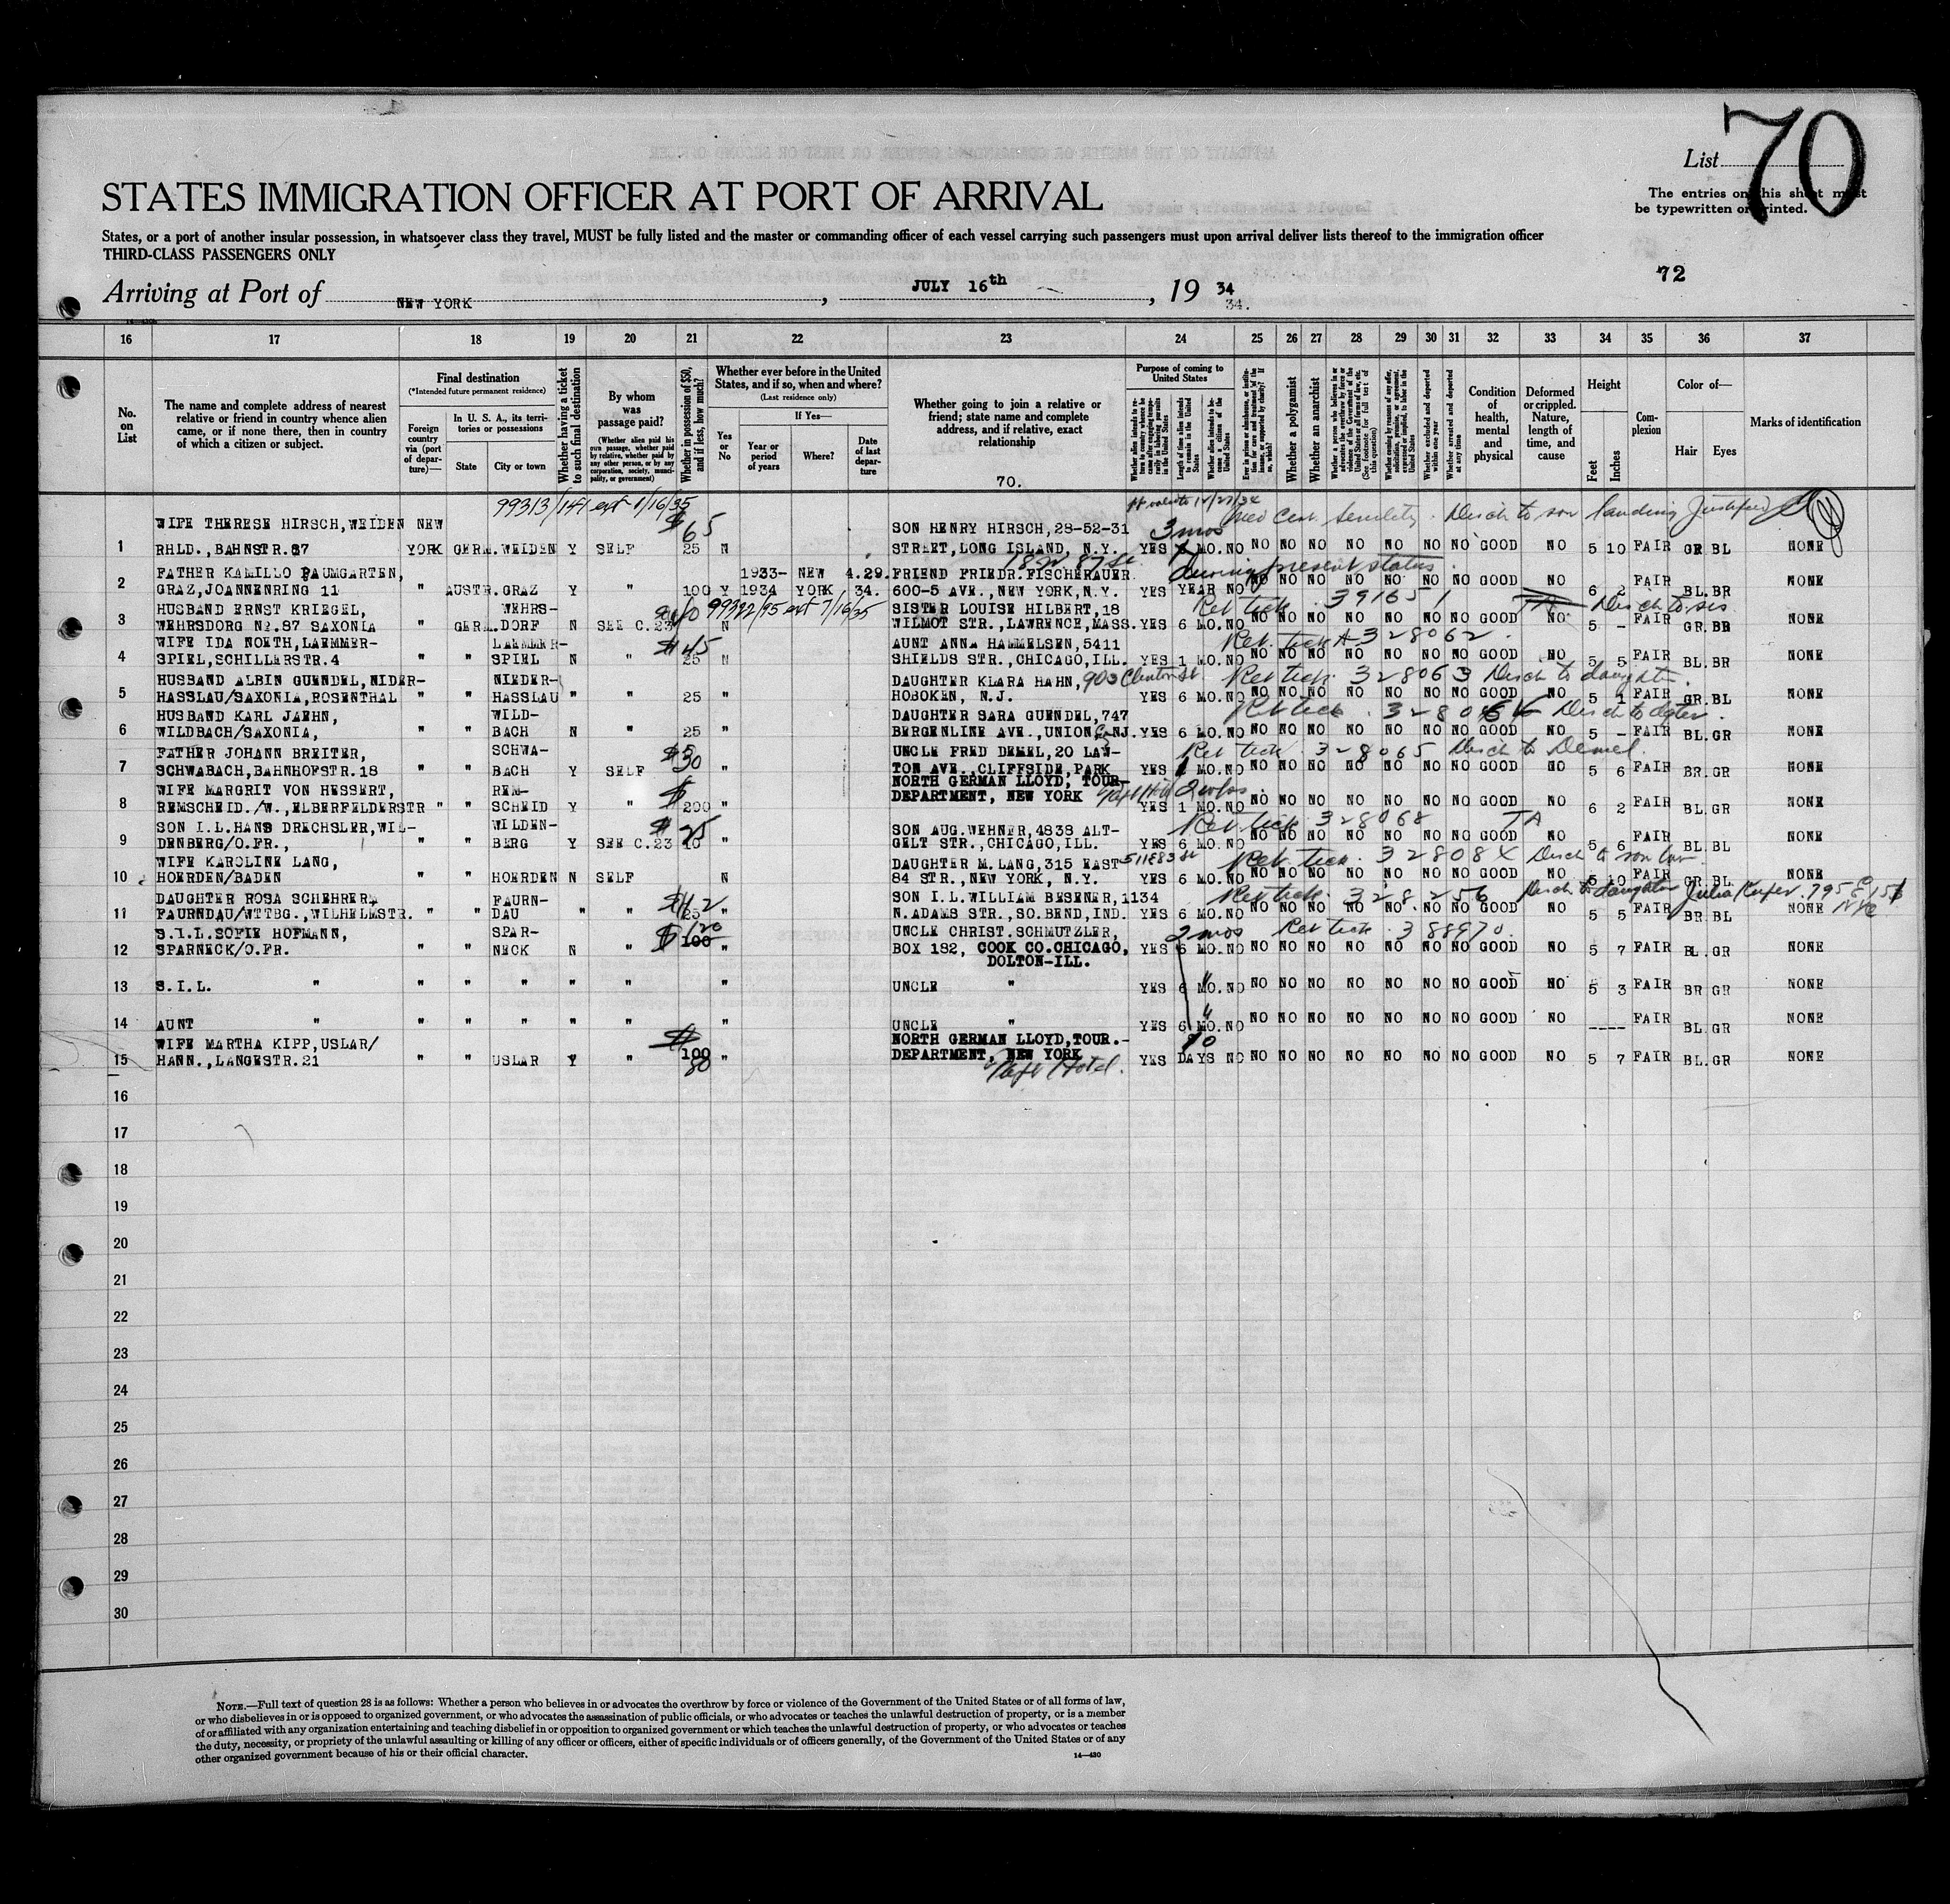 70
List
The entries on this sheet must
be typewritten or printed.
STATES IMMIGRATION OFFICER AT PORT OF ARRIVAL
States, or a port of another insular possession, in whatsoever class they travel, MUST be fully listed and the master or commanding officer of each vessel carrying such passengers must upon arrival deliver lists thereof to the immigration officer
THIRD-CLASS PASSENGERS ONLY
72
Arriving at Port of NEW YORK, JULY 16th, 19 34
34.
16 17 18 19 20 21 22 23 24 25 26 27 28 29 30 31 32 33 34 35 36 37
No. on List
The name and complete address of nearest
relative or friend in country whence alien
came, or if none there, then in country
of which a citizen or subject.
Final destination
(*Intended future permanent residence)
Foreign country via (port of departure)—
In U. S. A., its territories or possessions
State
City or town
Whether having a ticket to such final destination
By whom was passage paid?
(Whether alien paid his own passage, whether paid by relative, whether paid by any other person, or by any corporation, society, municipality, or government)
Whether in possession of $50, and if less, how much?
Whether ever before in the United States, and if so, when and where?
(Last residence only)
Yes or No
If Yes—
Year or period of years
Where?
Date of last departure
Whether going to join a relative or
friend; state name and complete
address, and if relative, exact
relationship
70.
Purpose of coming to United States
Whether alien intends to return to country whence he came after engaging temporarily in laboring pursuits in the United States
Length of time alien intends to remain in the United States
Whether alien intends to become a citizen of the United States
Ever in prison or almshouse, or institution for care and treatment of the insane, or supported by charity? If so, which?
Whether a polygamist
Whether an anarchist
Whether a person who believes in or advocates the overthrow by force or violence of the Government of the United States or all forms of law, etc. (See footnote for full text of this question)
Whether coming by reason of any offer, solicitation, promise, or agreement, expressed or implied, to labor in the United States
Whether excluded and deported within one year
Whether arrested and deported at any time
Condition of health, mental and physical
Deformed or crippled. Nature, length of time, and cause
Height
Feet
Inches
Complexion
Color of—
Hair
Eyes
Marks of identification
99313/141 ext 1/16/35
Med Cert Senility. Disch to son landing justified
WIFE THERESE HIRSCH, WEIDEN NEW $65 SON HENRY HIRSCH, 28-52-31 3 mos
1 RHLD., BAHNSTR.87 YORK GERM. WEIDEN Y SELF 25 N STREET, LONG ISLAND, N.Y. YES MO. NO NO NO NO NO NO NO NO GOOD NO 5 10 FAIR GR BL NONE
1822 87 St. during present status
FATHER KAMILLO BAUMGARTEN, 1933- NEW 4.29. FRIEND FRIEDR. FISCHERAUER
2 GRAZ, JOANNENRING 11 " AUSTR. GRAZ Y " 100 Y 1934 YORK 34. 600-5 AVE., NEW YORK, N.Y. YES YEAR NO NO NO NO NO NO NO NO GOOD NO 6 2 FAIR BL. BR NONE
HUSBAND ERNST KRIEGEL, WEHRS- 99322/95 ext 7/16/35 SISTER LOUISE HILBERT, 18 Ret tick 391651 TA Disch to sis
3 WEHRSDORG No.87 SAXONIA " GERM. DORF N SEE C.23 N WILMOT STR., LAWRENCE, MASS. YES 6 MO. NO NO NO NO NO NO NO NO GOOD NO 5 - FAIR GR. BR NONE
WIFE IDA NOETH, LAEMMER- LAEMMER- $45 AUNT ANNA HAMMELSEN, 5411 Ret tick A-328062.
4 SPIEL, SCHILLERSTR.4 " " SPIEL N " 25 N SHIELDS STR., CHICAGO, ILL. YES 1 MO. NO NO NO NO NO NO NO NO GOOD NO 5 5 FAIR BL. BR NONE
HUSBAND ALBIN GUENDEL, NIDER- NIEDER- DAUGHTER KLARA HAHN, 903 Clinton St Ret tick. 328063 Disch to daughter.
5 HASSLAU/SAXONIA, ROSENTHAL " " HASSLAU " " 25 " HOBOKEN, N.J. YES 6 MO. NO NO NO NO NO NO NO NO GOOD NO 5 1 FAIR GR. BL NONE
HUSBAND KARL JAEHN, WILD- DAUGHTER SARA GUENDEL, 747 Ret tick. Disch to dgter.
6 WILDBACH/SAXONIA, " " BACH N " 25 " BERGENLINE AVE., UNION C. NJ. YES 6 MO. NO NO NO NO NO NO NO NO GOOD NO 5 - FAIR BL. GR NONE
FATHER JOHANN BREITER, SCHWA- UNCLE FRED DEMEL, 20 LAW- Ret tick. 328065 Disch to Demel.
7 SCHWABACH, BAHNHOFSTR.18 " " BACH Y SELF 30 " TON AVE., CLIFFSIDE, PARK YES 1 MO. NO NO NO NO NO NO NO NO GOOD NO 5 6 FAIR BR. GR NONE
WIFE MARGRIT VON HESSERT, REM- $ NORTH GERMAN LLOYD, TOUR- 2 wks
8 REMSCHEID./W., ELBERFELDERSTR " " SCHEID Y " 200 " DEPARTMENT, NEW YORK YES 1 MO. NO NO NO NO NO NO NO NO GOOD NO 6 2 FAIR BL. GR NONE
SON I.L. HANS DRECHSLER, WIL- WILDEN- $25 SON AUG. WEHNER, 4838 ALT- Ret tick. 328068 TA
9 DENBERG/O.FR., " " BERG Y SEE C.23 10 " GELT STR., CHICAGO, ILL. YES 6 MO. NO NO NO NO NO NO NO NO GOOD NO 5 6 FAIR BL. BL NONE
WIFE KAROLINE LANG, DAUGHTER M. LANG, 315 EAST 511 E 83 St Ret tick. Disch to son law
10 HOERDEN/BADEN " " HOERDEN N SELF N 84 STR., NEW YORK, N.Y. YES 6 MO. NO NO NO NO NO NO NO NO GOOD NO 5 10 FAIR GR. BL NONE
DAUGHTER ROSA SCHEHRER, FAURN- $42 SON I.L. WILLIAM BESENER, 1134 Ret tick. 328256 Disch to daughter Julia
11 FAURNDAU/WTTBG., WILHELMSTR. " " DAU " " 65 " N. ADAMS STR., SO. BEND, IND. YES 6 MO. NO NO NO NO NO NO NO NO GOOD NO 5 5 FAIR BR. BL NONE NYC
S.I.L. SOFIE HOFMANN, SPAR- $120 UNCLE CHRIST. SCHMUTZLER, 2 mos Ret tick. 388970.
12 SPARNECK/O.FR. " " NECK N " 100 " BOX 182, COOK CO. CHICAGO, YES 6 MO. NO NO NO NO NO NO NO NO GOOD NO 5 7 FAIR BL. GR NONE
DOLTON-ILL.
13 S.I.L. " " " " " " " UNCLE " YES 6 MO. NO NO NO NO NO NO NO NO GOOD NO 5 3 FAIR BR GR NONE
14 AUNT " " " " " " " UNCLE " YES 6 MO. NO NO NO NO NO NO NO NO GOOD NO ---- FAIR BL. GR NONE
WIFE MARTHA KIPP, USLAR/ $ NORTH GERMAN LLOYD, TOUR.-
15 HANN., LANGESTR.21 " " USLAR Y " 100 80 " DEPARTMENT, NEW YORK YES DAYS NO NO NO NO NO NO NO NO GOOD NO 5 7 FAIR BL. GR NONE
Taft Hotel.
16
17
18
19
20
21
22
23
24
25
26
27
28
29
30
NOTE.—Full text of question 28 is as follows: Whether a person who believes in or advocates the overthrow by force or violence of the Government of the United States or of all forms of law,
or who disbelieves in or is opposed to organized government, or who advocates the assassination of public officials, or who advocates or teaches the unlawful destruction of property, or is a member
of or affiliated with any organization entertaining and teaching disbelief in or opposition to organized government or which teaches the unlawful destruction of property, or who advocates or teaches
the duty, necessity, or propriety of the unlawful assaulting or killing of any officer or officers, either of specific individuals or of officers generally, of the Government of the United States or of any
other organized government because of his or their official character.
14—430